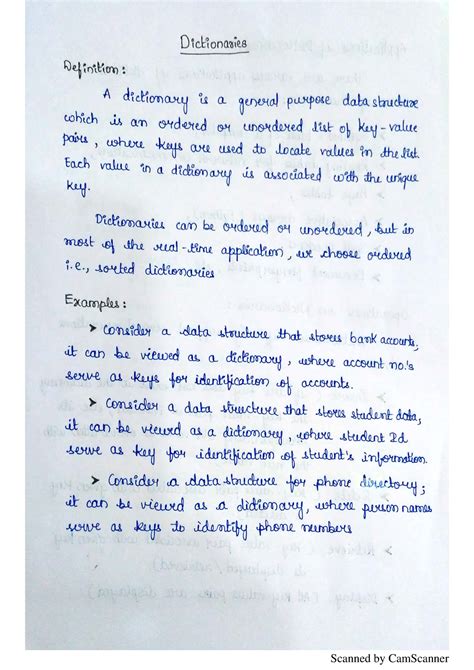 Dictionaries
Definition:
A dictionary is a general purpose data structure
which is an ordered or unordered list of key-value
pairs, where keys are used to locate values in the list.
Each value in a dictionary is associated with the unique
key.
Dictionaries can be ordered or unordered, but in
most of the real-time application, we choose ordered
i.e., sorted dictionaries
Examples:
➤ Consider a data structure that stores bank accounts,
it can be viewed as a dictionary, where account no.'s
serve as keys for identification of accounts.
➤ Consider a data structure that stores student data,
it can be viewed as a dictionary, where student Id
serve as key for identification of student's information.
➤ Consider a data structure for phone directory;
it can be viewed as a dictionary, where person names
serve as keys to identify phone numbers
Scanned by CamScanner